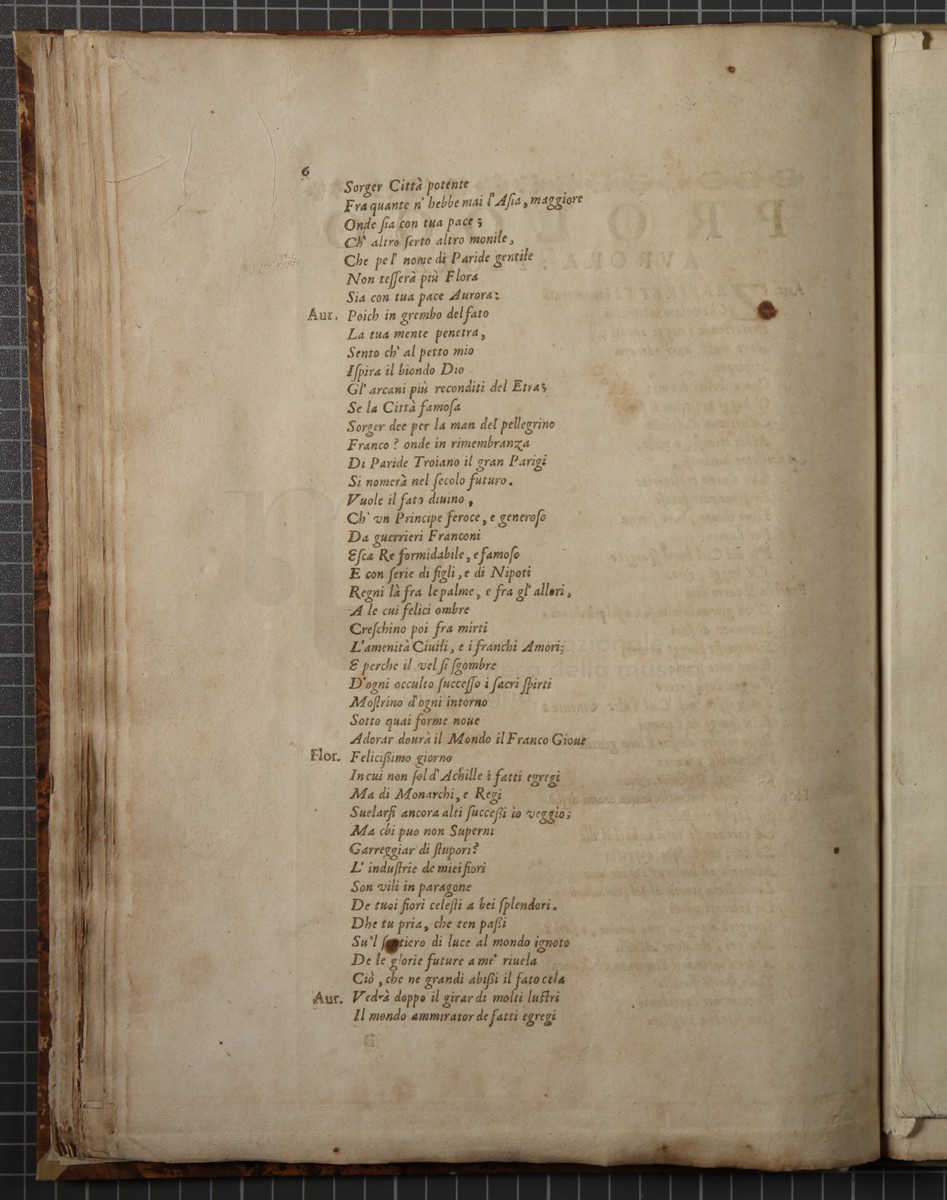 6
Sorger Città potente
Fra quante n' hebbe mai l'Asia, maggiore
Onde sia con tua pace;
Ch' altro serto altro monile,
Che pel nome di Paride gentile
Non tesserà più Flora
Sia con tua pace Aurora:
Aur. Poich in grembo del fato
La tua mente penetra,
Sento ch' al petto mio
Ispira il biondo Dio
Gl' arcani più reconditi del Etra;
Se la Città famosa
Sorger dee per la man del pellegrino
Franco? onde in rimembranza
Di Paride Troiano il gran Parigi
Si nomerà nel secolo futuro.
Vuole il fato diuino,
Ch' vn Principe feroce, e generoso
Da guerrieri Franconi
Esca Re formidabile, e famoso
E con serie di figli, e di Nipoti
Regni là fra le palme, e fra gl' allori,
A le cui felici ombre
Creschino poi fra mirti
L'amenità Ciuili, e i franchi Amori;
E perche il vel si sgombre
D'ogni occulto successo i sacri spirti
Mostrino d'ogni intorno
Sotto quai forme noue
Adorar dourà il Mondo il Franco Gioue
Flor. Felicissimo giorno
In cui non sol d'Achille i fatti egregi
Ma di Monarchi, e Regi
Suelarsi ancora alti successi io veggio;
Ma chi puo non Superni
Garreggiar di stupori?
L' industrie de miei fiori
Son vili in paragone
De tuoi fiori celesti a bei splendori.
Dhe tu pria, che ten passi
Su'l sentiero di luce al mondo ignoto
De le glorie future a me' riuela
Ciò, che ne grandi abissi il fato cela
Aur. Vedrà doppo il girar di molti lustri
Il mondo ammirator de fatti egregi